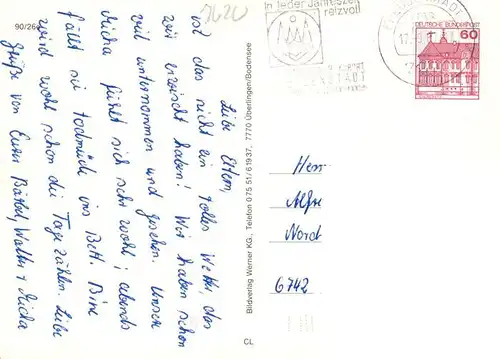 90/264
7620
Liebe Eltern,
ist das nicht ein tolles Wetter, das
wir erwischt haben! Wir haben schon
viel unternommen und gesehen. Unsere
Micha fühlt sich sehr wohl; abends
fällt sie todmüde ins Bett. Bine
wird wohl schon die Tage zählen. Liebe
Grüße von Euren Bärbel, Walter + Micha
Bildverlag Werner KG., Telefon 0 75 51/6 19 37, 7770 Überlingen/Bodensee
CL
In jeder Jahreszeit
reizvoll
DEUTSCHE BUNDESPOST
60
Herr
Nord
6742